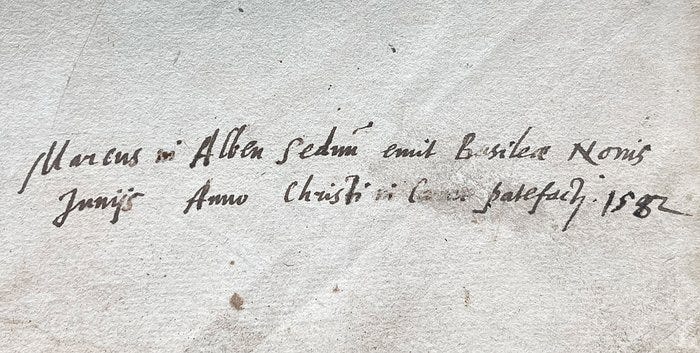 Marcus in Alben Sedun̄ emit Basileæ Nonis
Junijs Anno Christi in Carne patefacti. 1582